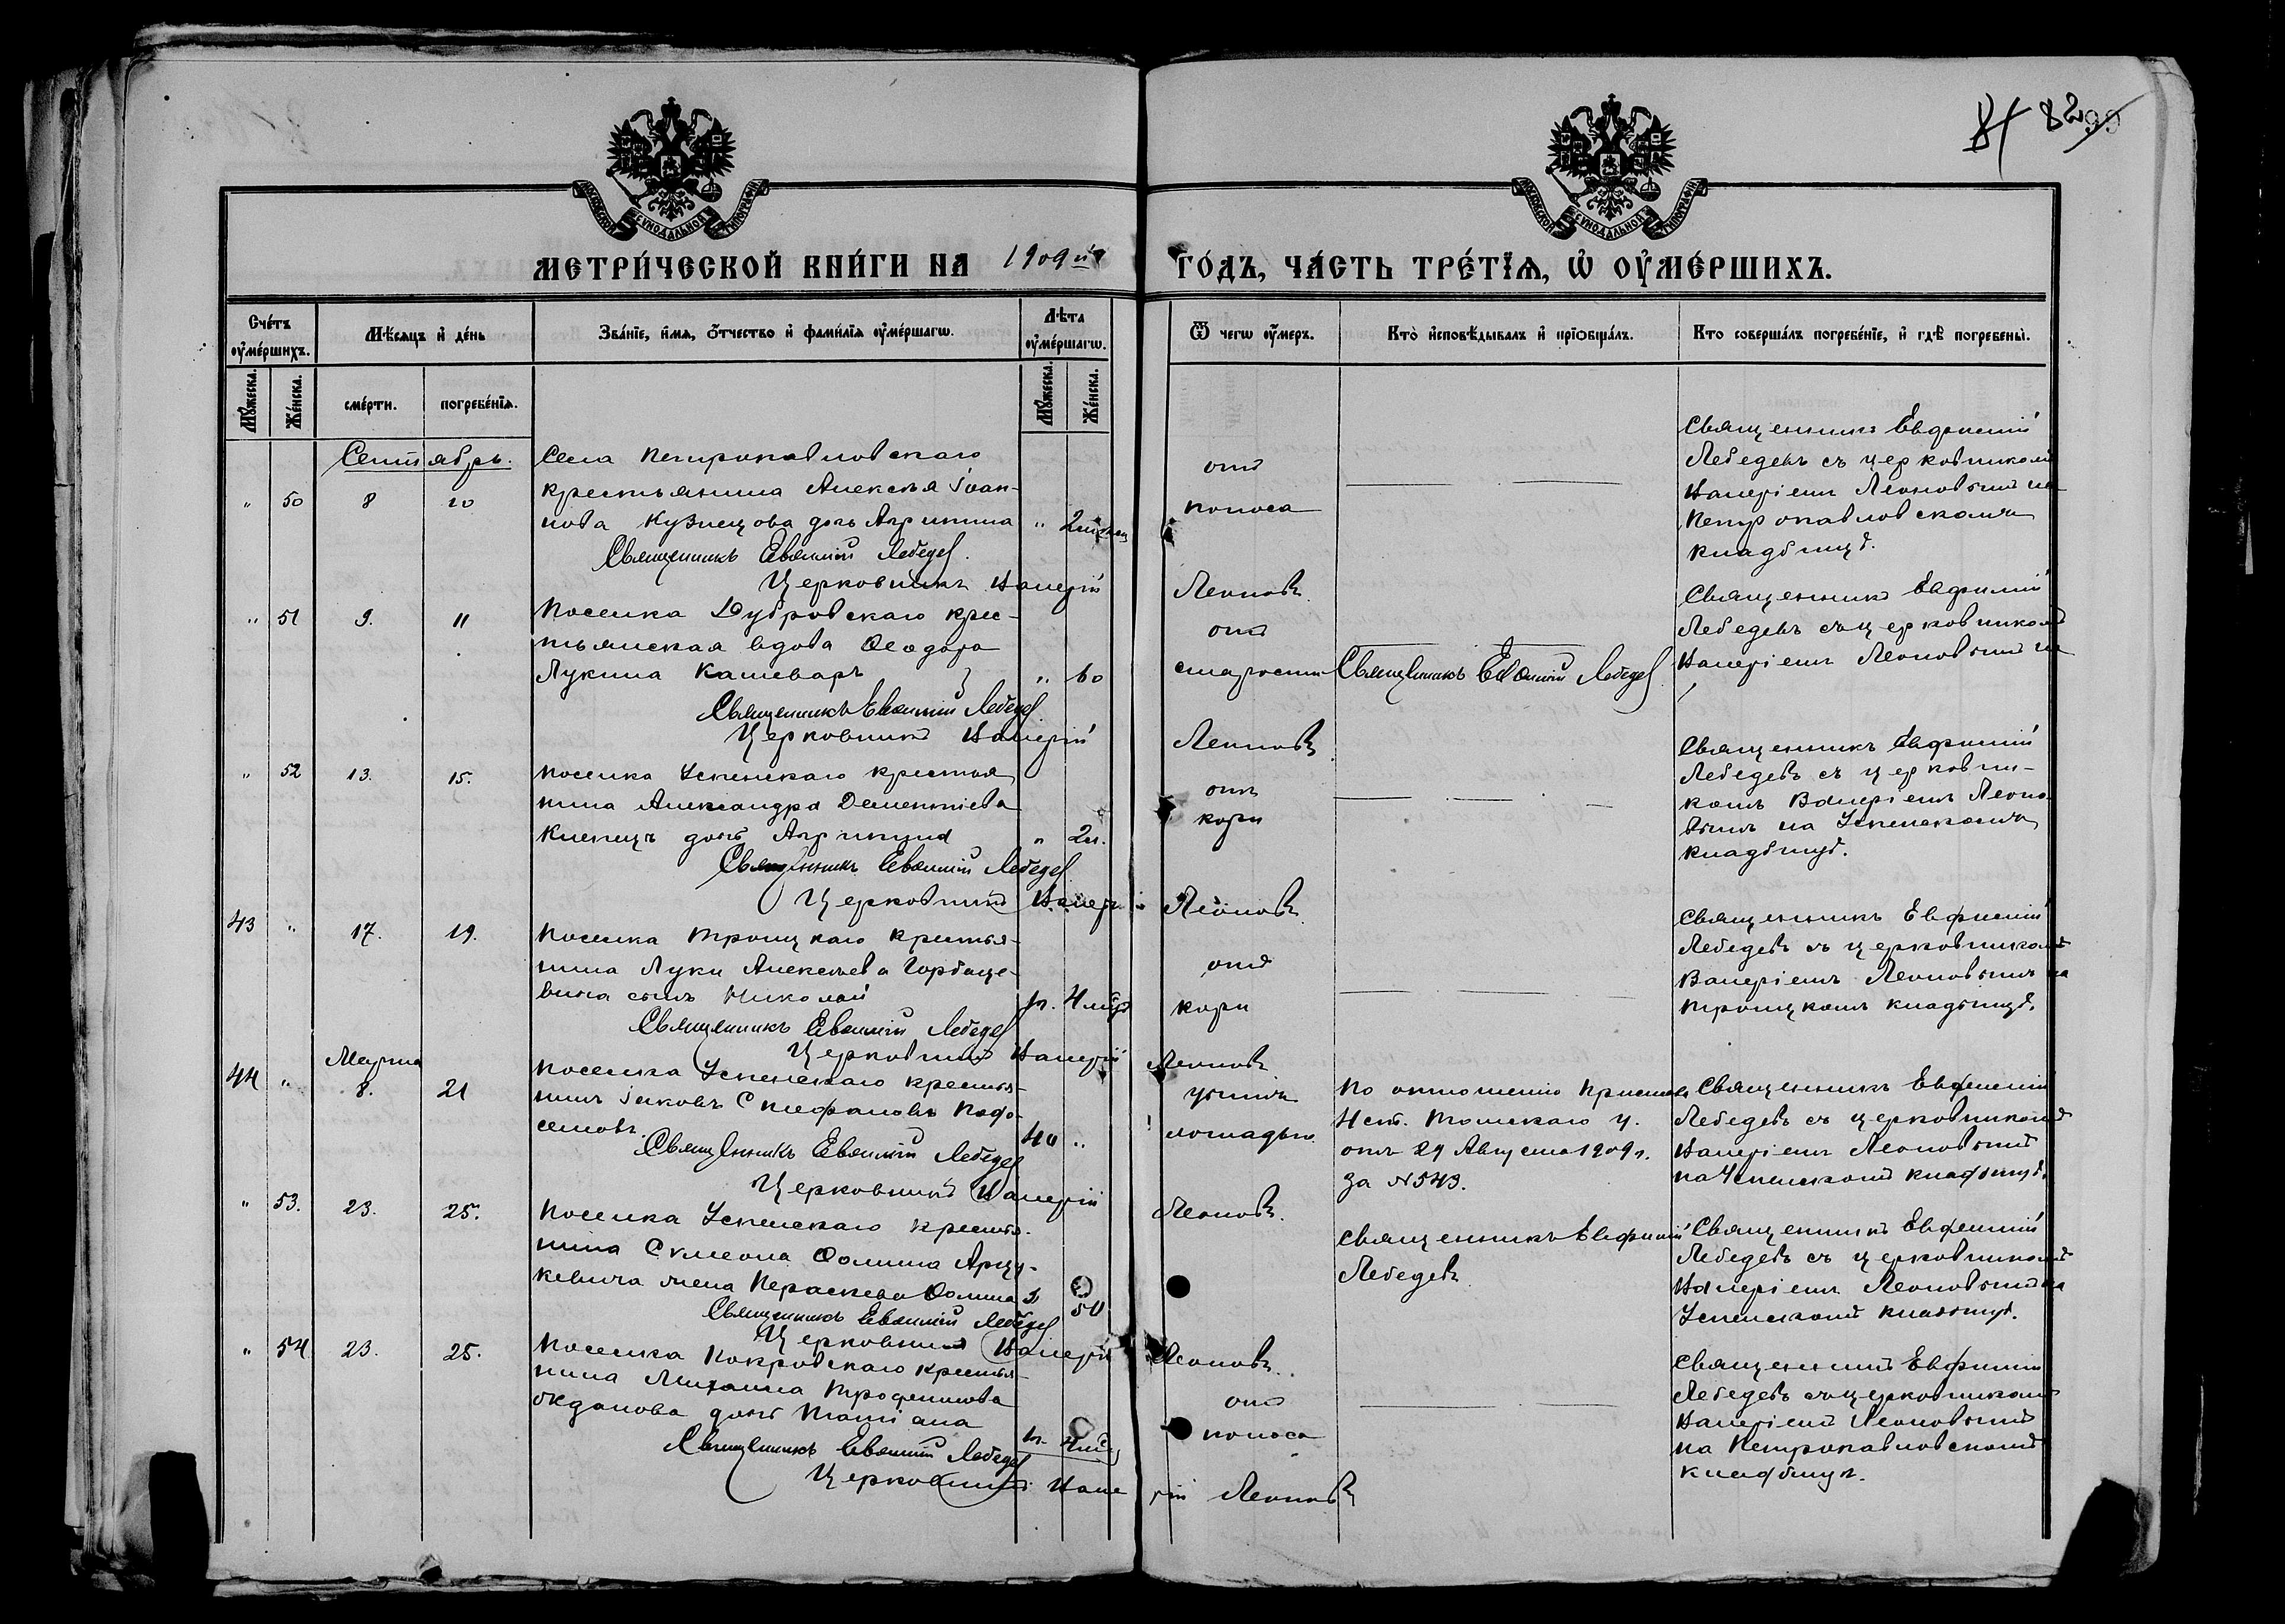 82
МЕТРИ́ЧЕСКОЙ КНИ́ГИ НА 1909 й
ГО́ДЪ, ЧА́СТЬ ТРЕ́ТЇѦ, Ѡ҆ ОУ҆МЕ́РШИХЪ.
Сче́тъ оу҆ме́ршихъ.
Мѣ́сѧцъ и҆ де́нь
Зва́нїе, и҆́мѧ, ѻ҆́тчество и҆ фами́лїѧ оу҆ме́ршагѡ.
Лѣ́та оу҆ме́ршагѡ.
Ѿ чегѡ̀ оу҆́меръ.
Кто̀ и҆сповѣ́дывалъ и҆ прїѡбща́лъ.
Кто соверша́лъ погребе́нїе, и҆ гдѣ̀ погребены̀.
Мꙋ́жеска.
Же́нска.
сме́рти.
погребе́нїѧ.
Мꙋ́жеска.
Же́нска.
Сентябрь.
" 50 8 10
Села Петропавловскаго
крестьянина Алексѣя Іоан-
нова Кузнецова дочь Агрипина " 2
Священникъ Евѳимій Лебедев.
Церковникъ Валерій Леоновъ
отъ
поноса
Священникъ Евфимій
Лебедевъ съ церковникомъ
Валеріемъ Леоновымъ на
Петропавловскомъ
кладбищѣ.
" 51 9. 11
Поселка Дубровскаго крес-
тьянская вдова Ѳеодора
Лукина Кашеваръ " 60
Священникъ Евѳимій Лебедев
Церковникъ Валерій Леоновъ
отъ
старости
Священникъ Евѳимій Лебедев
Священникъ Евфимій
Лебедевъ съ церковникомъ
Валеріемъ Леоновымъ на
" 52 13. 15.
Поселка Успенскаго крестья-
нина Александра Дементіева
дочь " 2
Священникъ Евѳимій Лебедев
Церковникъ Валерій Леоновъ
отъ
кори
Священникъ Евфимій
Лебедевъ съ церковни-
комъ Валеріемъ Леоно-
вымъ на Успенскомъ
кладбищѣ.
43 " 17. 19.
Поселка Троицкаго крестья-
нина Луки Алексѣева Горбаце-
вича сынъ Николай
Священникъ Евѳимій Лебедев
Церковникъ Валерій Леоновъ
отъ
кори
Священникъ Евфимій
Лебедевъ съ церковникомъ
Валеріемъ Леоновымъ на
Троицкомъ кладбищѣ.
Марта
44 " 8. 21
Поселка Успенскаго крестья-
нинъ Іаковъ Стефановъ
40 "
Священникъ Евѳимій Лебедев
Церковникъ Валерій Леоновъ
убитъ
лошадью.
По отношенію Пристава
4 ст. Томскаго у.
отъ 29 Августа 1909 г.
за № 543.
Священникъ Евфимій
Лебедевъ съ церковникомъ
Валеріемъ Леоновымъ
на Успенскомъ кладбищѣ.
" 53. 23. 25.
Поселка Успенскаго крестья-
нина Симеона Ѳомина Арцу-
кевича жена Параскева Ѳомина 50
Священникъ Евѳимій Лебедев
Церковникъ Валерій Леоновъ
Священникъ Евфимій
Лебедевъ
Священникъ Евфимій
Лебедевъ съ церковникомъ
Валеріемъ Леоновымъ на
Успенскомъ кладбищѣ.
" 54 23. 25.
Поселка Покровскаго крестья-
нина Михаила Трофимова
дочь Татіана
Священникъ Евѳимій Лебедев
Церковникъ Валерій Леоновъ
отъ
поноса
Священникъ Евфимій
Лебедевъ съ церковникомъ
Валеріемъ Леоновымъ
на Петропавловскомъ
кладбищѣ.